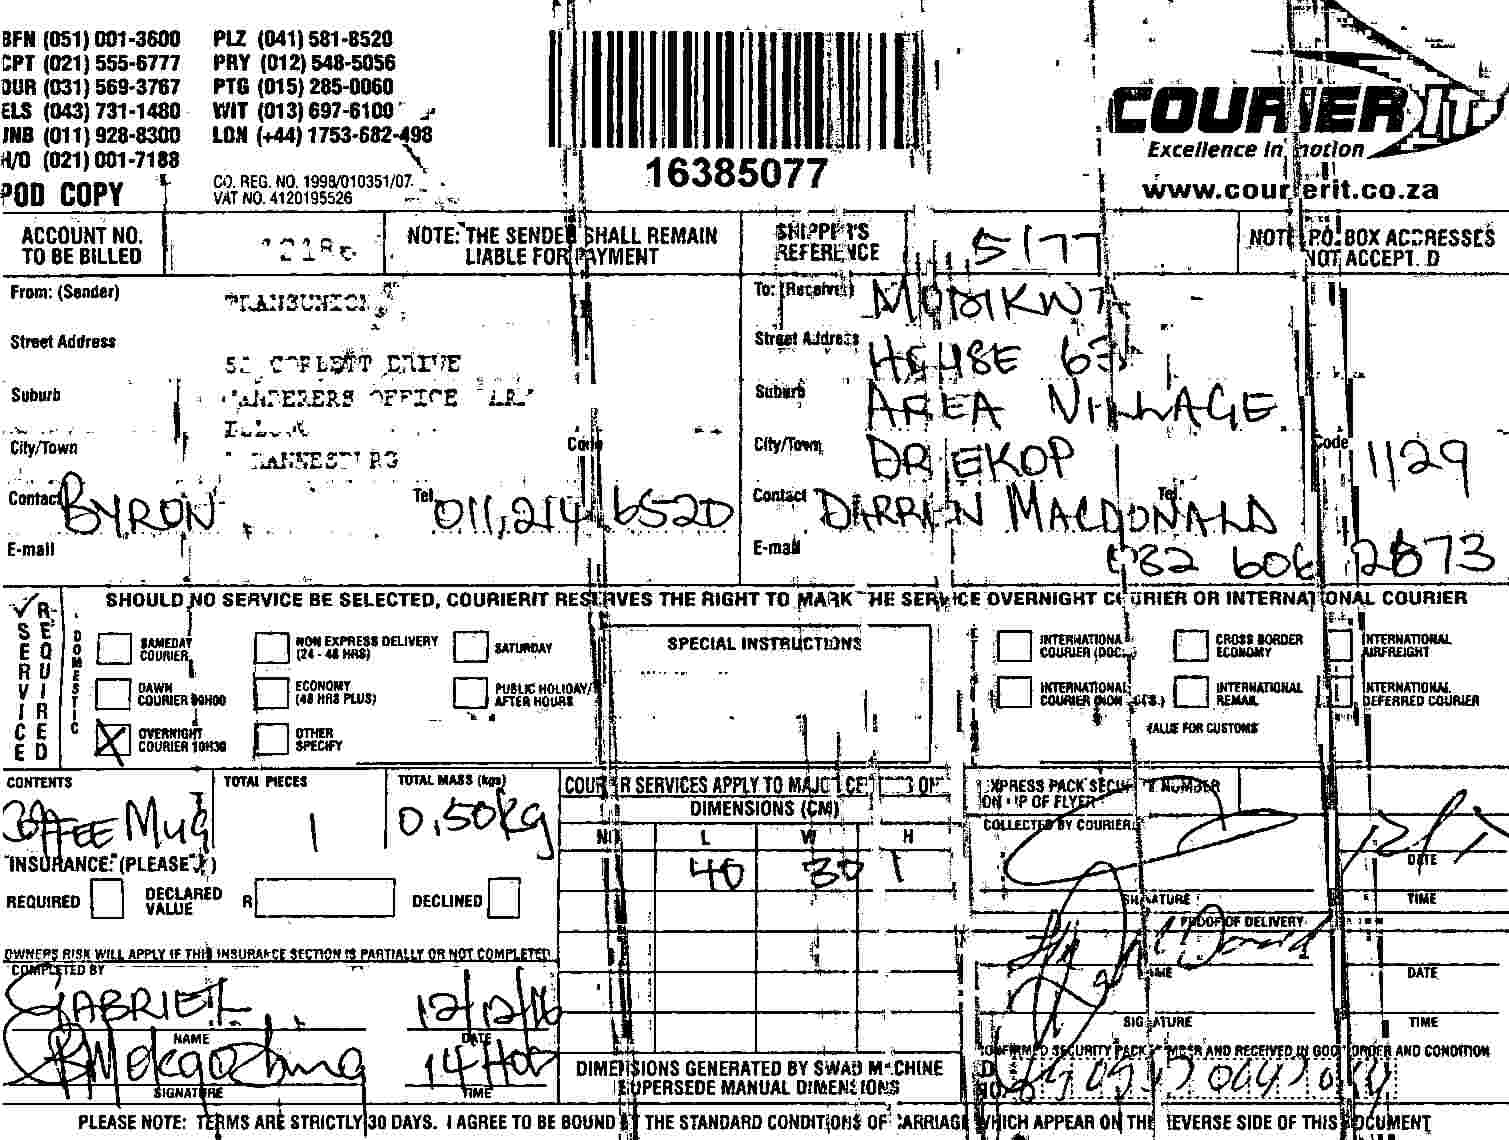 BFN (051) 001-3600 PLZ (041) 581-8520
CPT (021) 555-6777 PRY (012) 548-5056
DUR (031) 569-3767 PTG (015) 285-0060
ELS (043) 731-1480 WIT (013) 697-6100
JNB (011) 928-8300 LON (+44) 1753-682-498
H/O (021) 001-7188
POD COPY
CO. REG. NO. 1998/010351/07
VAT NO. 4120195526
16385077
COURIER IT
Excellence in motion
www.courierit.co.za
ACCOUNT NO. TO BE BILLED
NOTE: THE SENDER SHALL REMAIN LIABLE FOR PAYMENT
SHIPPER'S REFERENCE 5177
NOTE P.O. BOX ADDRESSES NOT ACCEPTED
From: (Sender) TRANSUNION
Street Address
CORLETT DRIVE
Suburb WANDERERS OFFICE
ILLOVO
City/Town JOHANNESBURG Code
Contact BYRON Tel 011, 214 6520
E-mail
To: (Receiver) MODIKWA
Street Address HOUSE 63
Suburb AREA VILLAGE
City/Town DRIEKOP Code 1129
Contact DARREN MACDONALD Tel.
E-mail 082 606 2873
SERVICE REQUIRED
DOMESTIC
SHOULD NO SERVICE BE SELECTED, COURIERIT RESERVES THE RIGHT TO MARK THE SERVICE OVERNIGHT COURIER OR INTERNATIONAL COURIER
SAMEDAY COURIER
NON EXPRESS DELIVERY (24 - 48 HRS)
SATURDAY
DAWN COURIER 09H00
ECONOMY (48 HRS PLUS)
PUBLIC HOLIDAY/ AFTER HOURS
OVERNIGHT COURIER 10H30
OTHER SPECIFY
SPECIAL INSTRUCTIONS
INTERNATIONAL COURIER (DOCS.)
CROSS BORDER ECONOMY
INTERNATIONAL AIRFREIGHT
INTERNATIONAL COURIER (NON DOCS.)
INTERNATIONAL REMAIL
INTERNATIONAL DEFERRED COURIER
VALUE FOR CUSTOMS
CONTENTS COFFEE Mug
TOTAL PIECES 1
TOTAL MASS (kgs) 0,50kg
INSURANCE: (PLEASE )
REQUIRED DECLARED VALUE R DECLINED
OWNERS RISK WILL APPLY IF THIS INSURANCE SECTION IS PARTIALLY OR NOT COMPLETED
COMPLETED BY
GABRIEL 12/12/16
NAME DATE
14H00
SIGNATURE TIME
COURIER SERVICES APPLY TO MAJOR CENTRES ONLY
DIMENSIONS (CM)
NO L W H
40 30 1
DIMENSIONS GENERATED BY SWAD MACHINE SUPERSEDE MANUAL DIMENSIONS
EXPRESS PACK SECURITY NUMBER ON TOP OF FLYER
COLLECTED BY COURIER
DATE
SIGNATURE TIME
PROOF OF DELIVERY
NAME DATE
SIGNATURE TIME
CONFIRMED SECURITY PACK NUMBER AND RECEIVED IN GOOD ORDER AND CONDITION
PLEASE NOTE: TERMS ARE STRICTLY 30 DAYS. I AGREE TO BE BOUND BY THE STANDARD CONDITIONS OF CARRIAGE WHICH APPEAR ON THE REVERSE SIDE OF THIS DOCUMENT